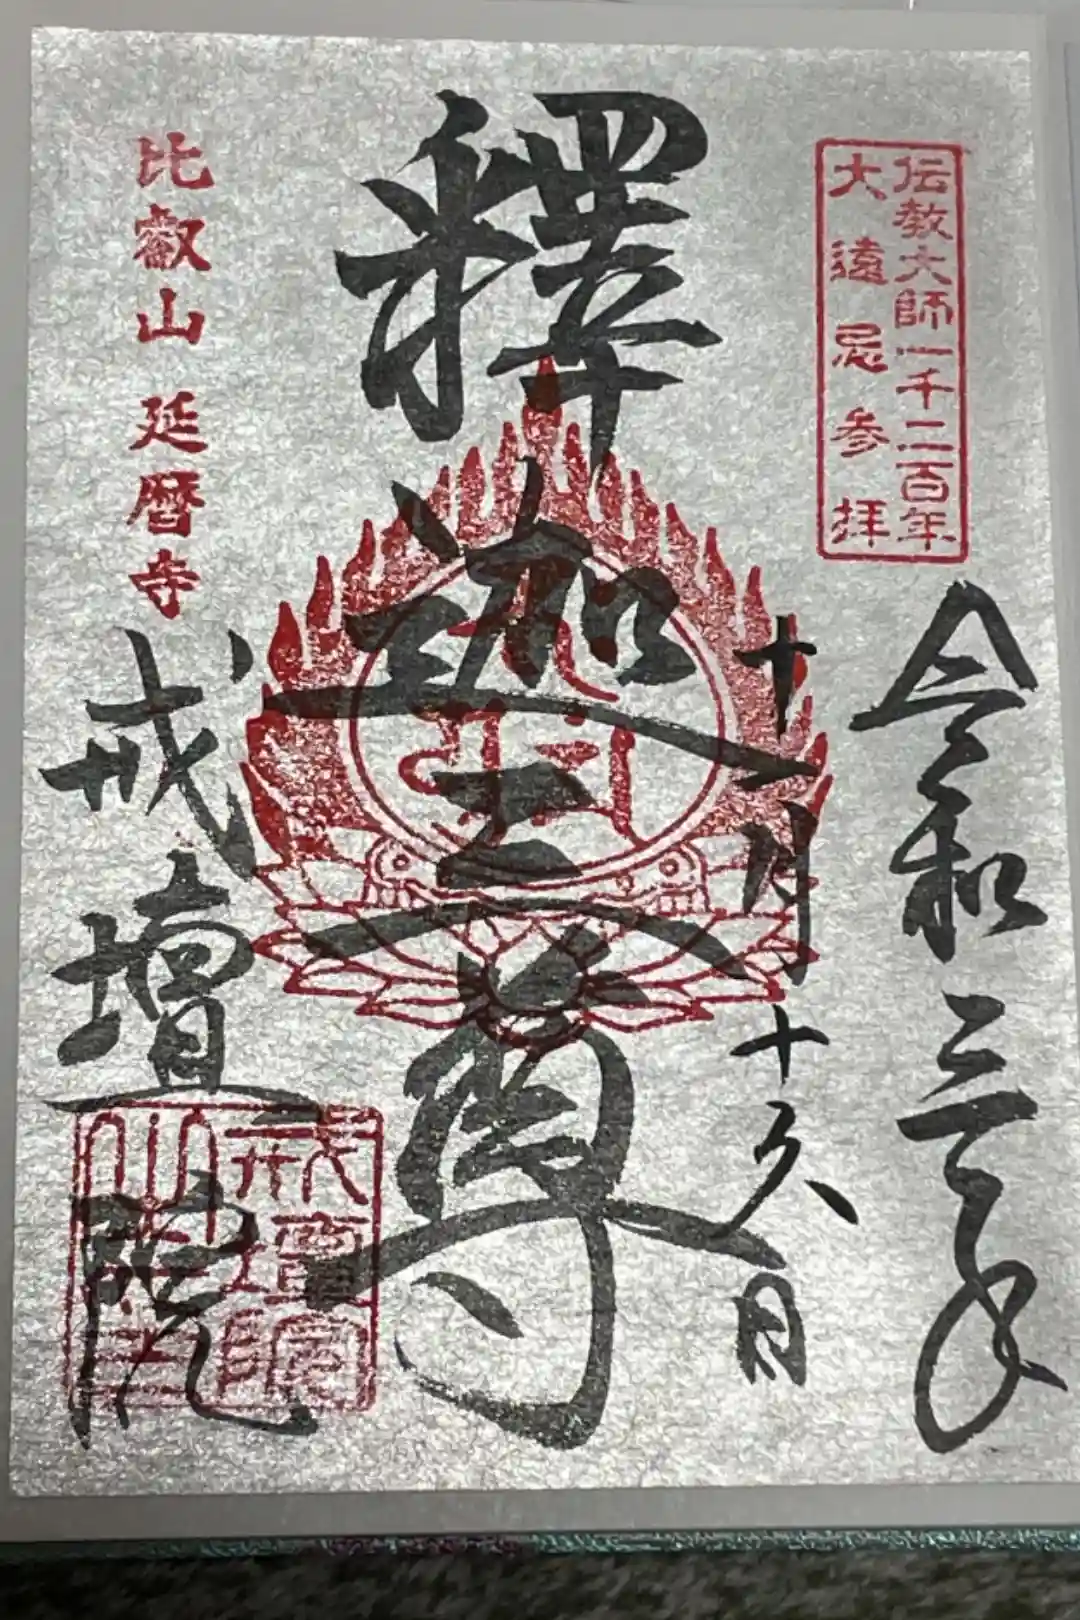 伝教大師一千二百年
大遠忌参拝
令和三年
十一月十久日
釋迦三尊
比叡山 延暦寺
戒壇院
戒壇院